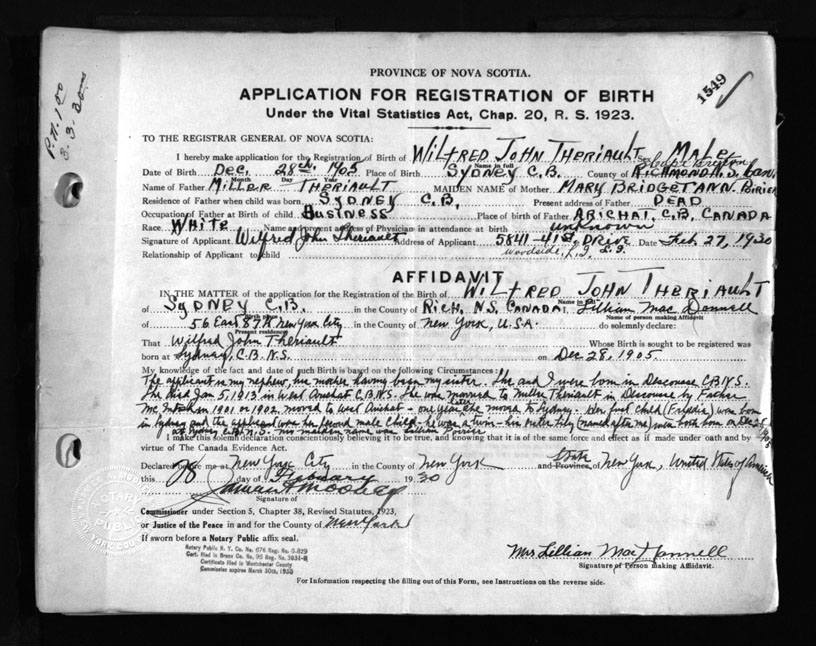 P.N. 1.00
3. 3. 30
1549 ✓
PROVINCE OF NOVA SCOTIA.
APPLICATION FOR REGISTRATION OF BIRTH
Under the Vital Statistics Act, Chap. 20, R. S. 1923.
TO THE REGISTRAR GENERAL OF NOVA SCOTIA:
I hereby make application for the Registration of Birth of WILFRED JOHN THERIAULT Sex MALE
Name in full
Date of Birth DEC. 28th 1905 Place of Birth SYDNEY C.B. County of Cape Breton RICHMOND N.S. Can.
Month Day Year
Name of Father MILLER THERIAULT MAIDEN NAME of Mother MARY BRIDGET ANN
Residence of Father when child was born SYDNEY C.B. Present address of Father DEAD
Occupation of Father at Birth of child BUSINESS Place of birth of Father ARICHAT, C.B. CANADA
Race WHITE Name and present address of Physician in attendance at birth unknown
Signature of Applicant Wilfred John Theriault Address of Applicant 5841-41st DRIVE Date Feb. 27, 1930
Relationship of Applicant to child Woodside, L.I.
AFFIDAVIT
IN THE MATTER of the application for the Registration of the Birth of WILFRED JOHN THERIAULT
Name in full
of SYDNEY C.B. in the County of RICH, N.S. CANADA. Lillian Mac Donnell
Name of person making Affidavit
of 56 East 87th New York City in the County of New York, U.S.A. do solemnly declare:
Present residence
That Wilfred John Theriault Whose Birth is sought to be registered was
born at Sydney, C.B. N.S. on Dec 28, 1905.
My knowledge of the fact and date of such Birth is based on the following Circumstances:
The applicant is my nephew, his mother having been my sister. She and I were born in Descouse C.B. N.S.
She died Jan 5, 1913 in West Arichat C.B. N.S. She was married to Miller Theriault in Descouse by Father
Mc Intosh in 1901 or 1902. moved to West Arichat - one year later she moved to Sydney. Her first child (Freddie) was born
in Sydney and the applicant was her second male child - he was a twin - his sister Lily (named after me) were both born on Dec 28 1905
at Sydney C.B. N.S. - maiden name was
I make this solemn declaration conscientiously believing it to be true, and knowing that it is of the same force and effect as if made under oath and by
virtue of The Canada Evidence Act.
Declared before me at New York City in the County of New York and Province of State New York, United States of America
this 28 day of February 1930
Signature of
Commissioner under Section 5, Chapter 38, Revised Statutes, 1923,
or Justice of the Peace in and for the County of New York
If sworn before a Notary Public affix seal.
Notary Public N. Y. Co. No. 676 Reg. No. 0-829
Cert. filed in Bronx Co. No. 95 Reg. No. 3034-R
Certificate filed in Westchester County
Commission expires March 30th, 1930
Mrs Lillian Mac Donnell
Signature of Person making Affidavit.
For Information respecting the filling out of this Form, see Instructions on the reverse side.
NOTARY
PUBLIC